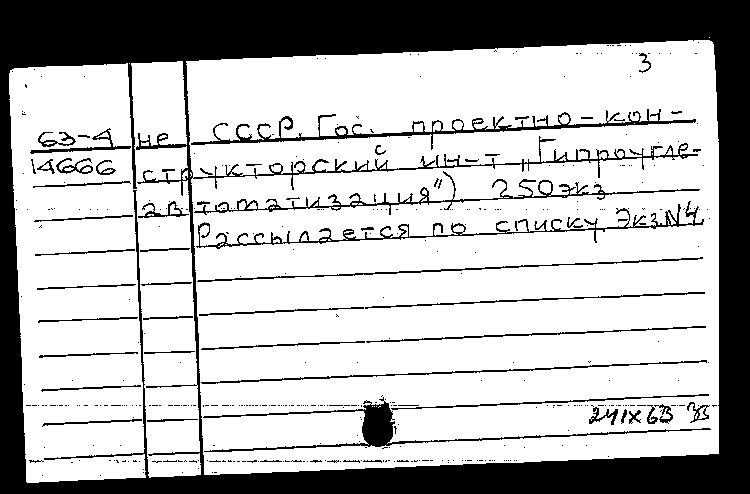 3
63-4 не СССР. Гос. проектно-кон-
14666 структорский ин-т „Гипроугле-
автоматизация") 250экз
Рассылается по списку. Экз.N4
24IX63